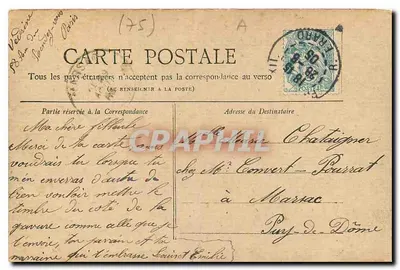 (75)
A
Vedrine
Paris
CARTE POSTALE
Tous les pays étrangers n'acceptent pas la correspondance au verso
(SE RENSEIGNER A LA POSTE)
Partie réservée à la Correspondance
Adresse du Destinataire
Ma chère filleule
Merci de la carte
voudrais tu lorsque tu
m'en enverras d'autre de
bien vouloir mettre le
timbre du côté de la
gravure comme elle que je
t'envoie, ton parrain et ta
marraine qui t'embrasse
Chataigner
chez Mr Convert-Pourrat
à Marsac
Puy-de-Dôme
CPArama.com